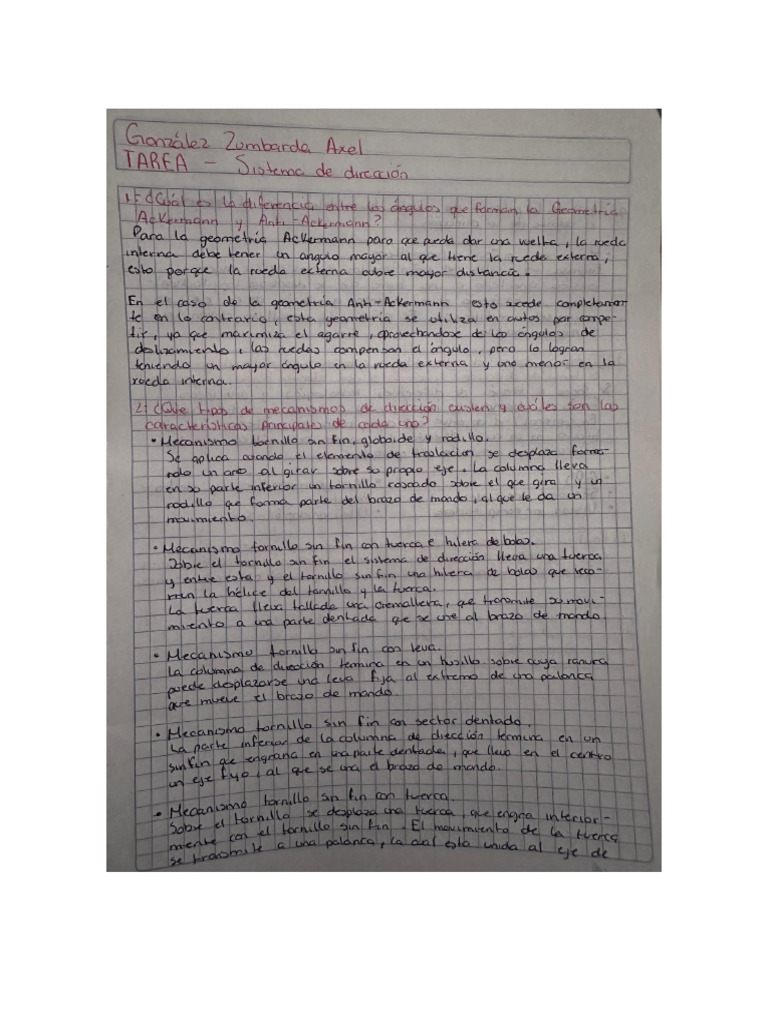 González Zumbarda Axel
TAREA - Sistema de dirección
1. ¿Cuál es la diferencia entre los ángulos que forman la Geometría
Ackermann y Anti-Ackermann?
Para la geometría Ackermann para que pueda dar una vuelta, la rueda
interna debe tener un angulo mayor al que tiene la rueda externa,
esto porque la rueda externa cubre mayor distancia.
En el caso de la geometría Anti-Ackermann esto sucede completamen-
te en lo contrario, esta geometría se utiliza en autos por compe-
tir, ya que maximiza el agarre, aprovechandose de los ángulos de
deslizamiento, las ruedas compensan el ángulo, pero lo logran
teniendo un mayor ángulo en la rueda externa y uno menor en la
rueda interna.
2. ¿Que tipos de mecanismos de dirección existen y cuáles son las
características principales de cada uno?
• Mecanismo tornillo sin fin, globoide y rodillo.
Se aplica cuando el elemento de traslación se desplaza forma-
ndo un arco al girar sobre su propio eje. La columna lleva
en su parte inferior un tornillo roscado sobre el que gira y un
rodillo que forma parte del brazo de mando, al que le da un
movimiento.
• Mecanismo tornillo sin fin con tuerca e hilera de bolas.
Sobre el tornillo sin fin el sistema de dirección lleva una tuerca
y entre esta y el tornillo sin fin una hilera de bolas que reco-
rren la hélice del tornillo y la tuerca.
La tuerca lleva tallada una cremallera, que transmite su movi-
miento a una parte dentada que se une al brazo de mando.
• Mecanismo tornillo sin fin con leva.
La columna de dirección termina en un husillo sobre cuya ranura
puede desplazarse una leva fija al extremo de una palanca
que mueve el brazo de mando.
• Mecanismo tornillo sin fin con sector dentado.
La parte inferior de la columna de dirección termina en un
sinfin que engrana en una parte dentada, que lleva en el centro
un eje fijo, al que se una el brazo de mando.
• Mecanismo tornillo sin fin con tuerca.
Sobre el tornillo se desplaza una tuerca, que engrna interior-
miente con el tornillo sin fin. El movimiento de la tuerca
se transmite a una palanca, la cual esta unida al eje de